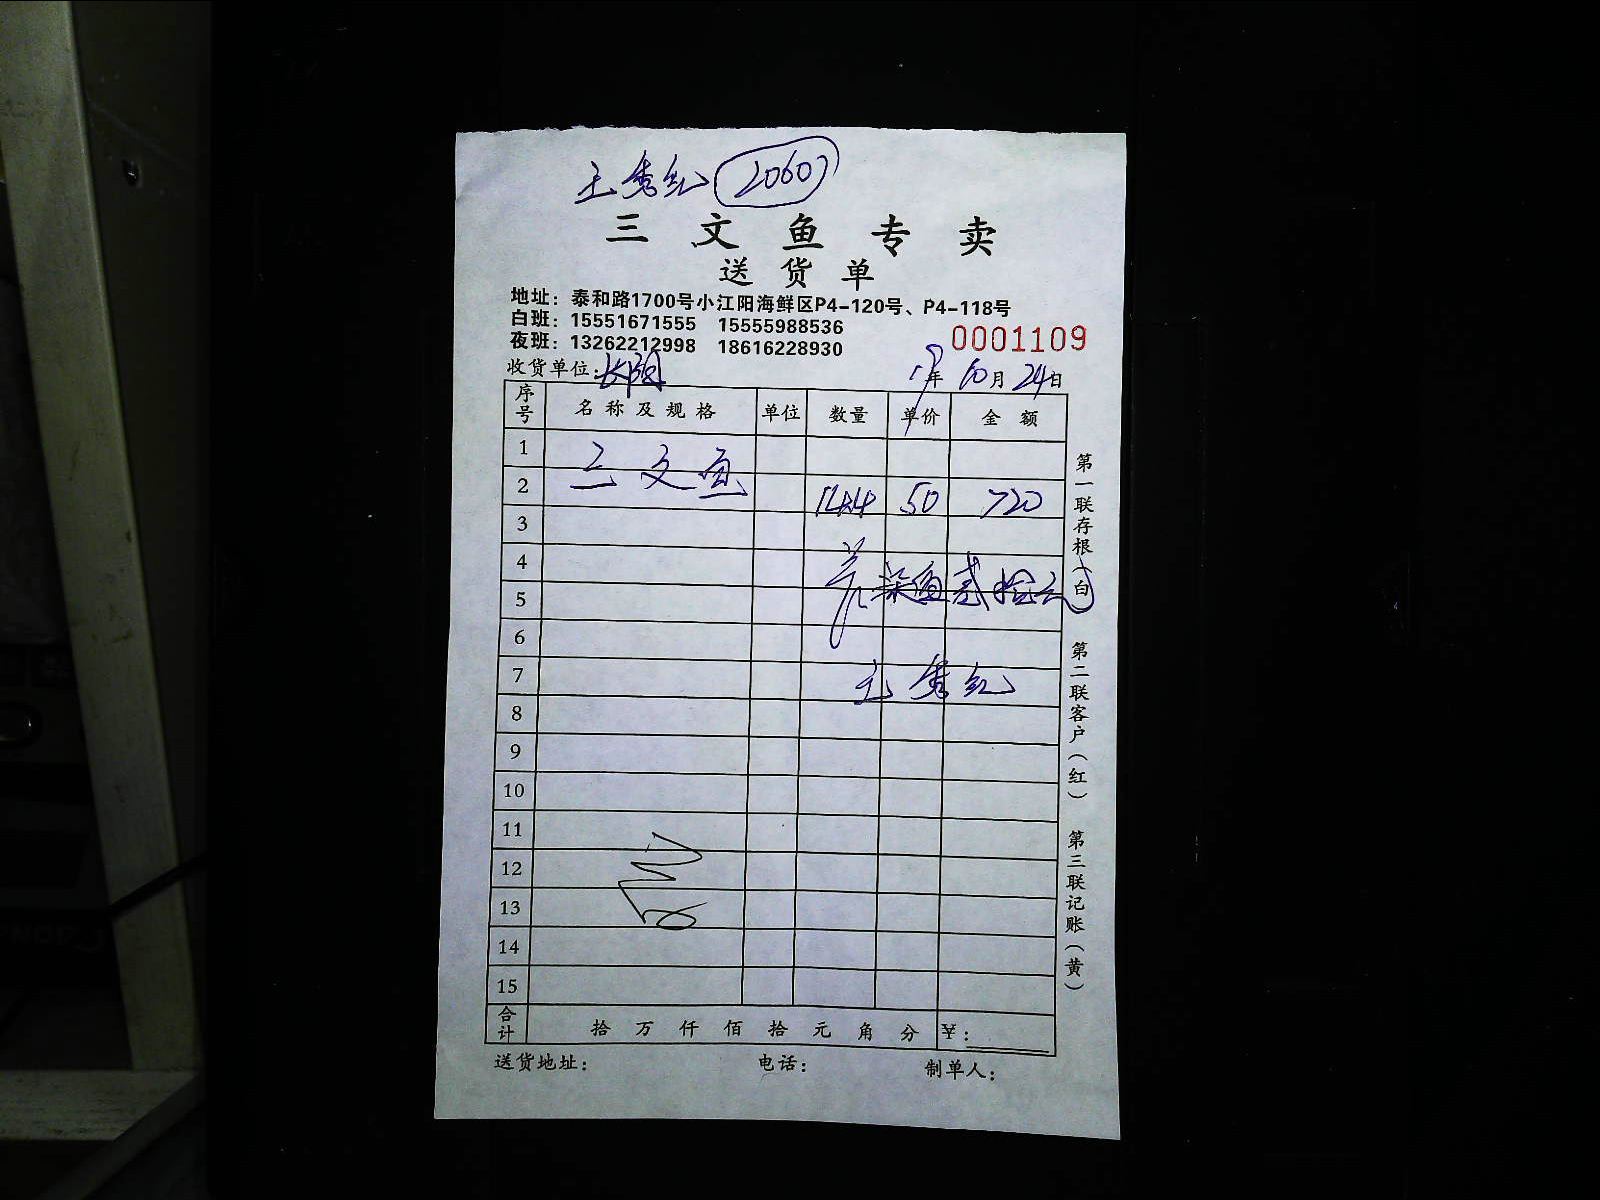 王秀红 20607
三文鱼专卖
送货单
地址：泰和路1700号小江阳海鲜区P4-120号、P4-118号
白班：15551671555 15555988536
夜班：13262212998 18616228930
0001109
收货单位：长阳
19年10月24日
序号 名称及规格 单位 数量 单价 金额
1 三文鱼
2 14.4 50 720
3
4
5 柒佰贰拾元
6
7 王秀红
8
9
10
11
12
13
14
15
合计 拾 万 仟 佰 拾 元 角 分 ¥：
送货地址： 电话： 制单人：
第一联存根（白）
第二联客户（红）
第三联记账（黄）